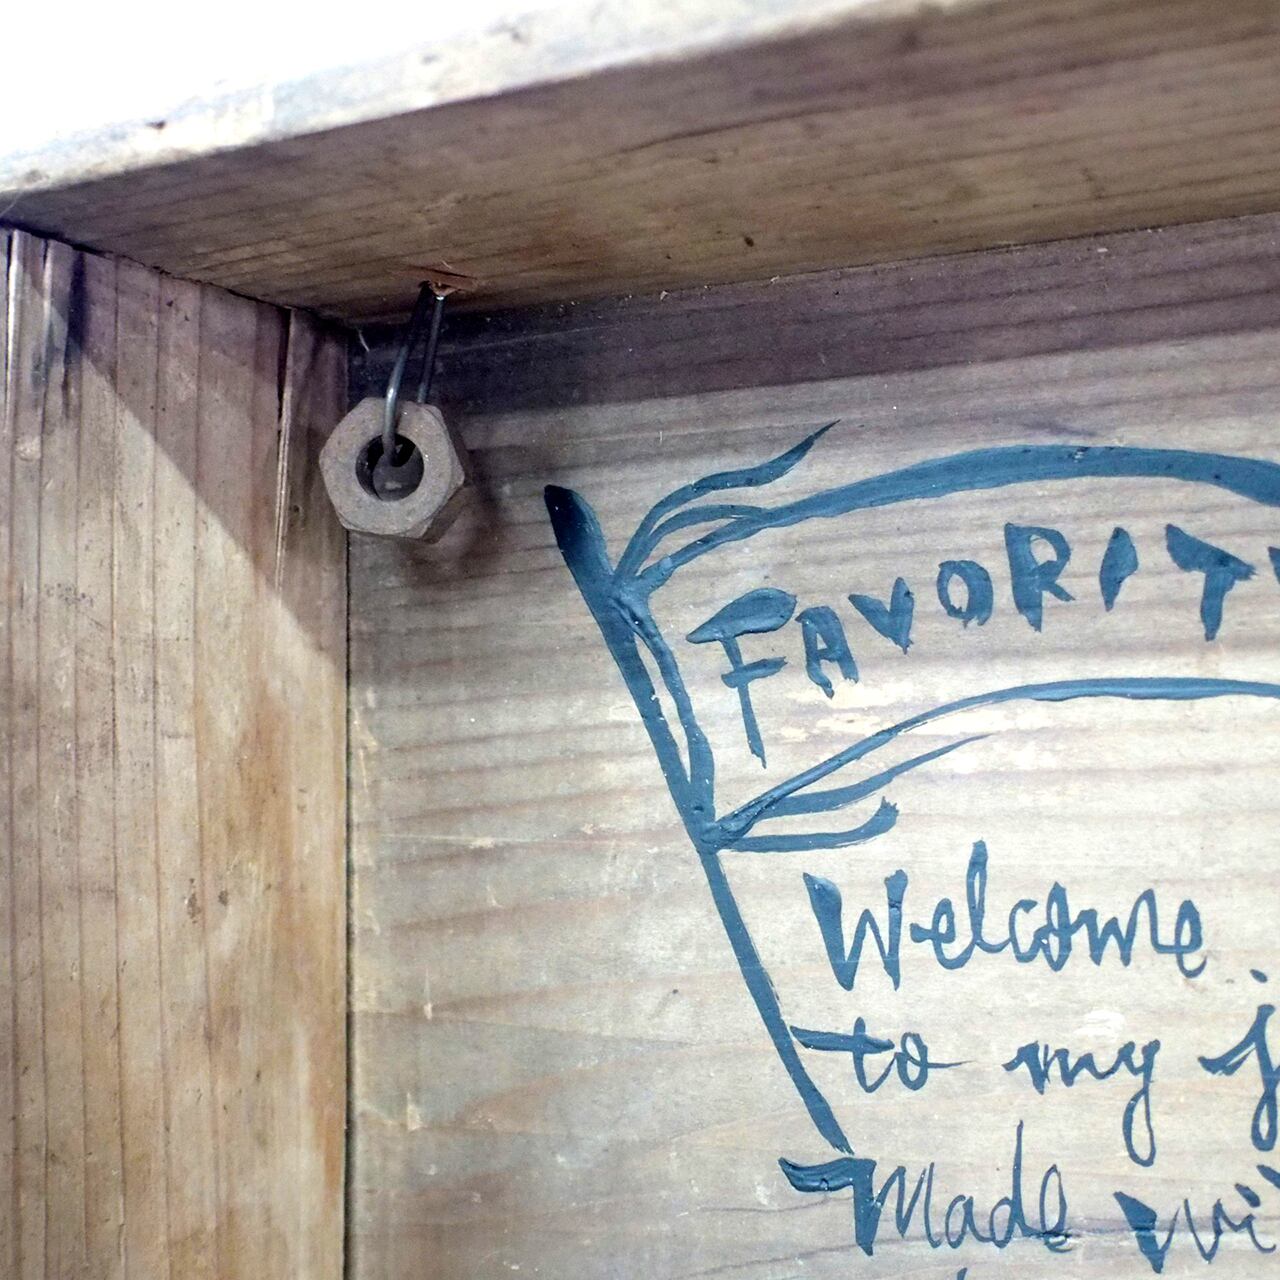 FAVORIT
Welcome
to my j
Made wi